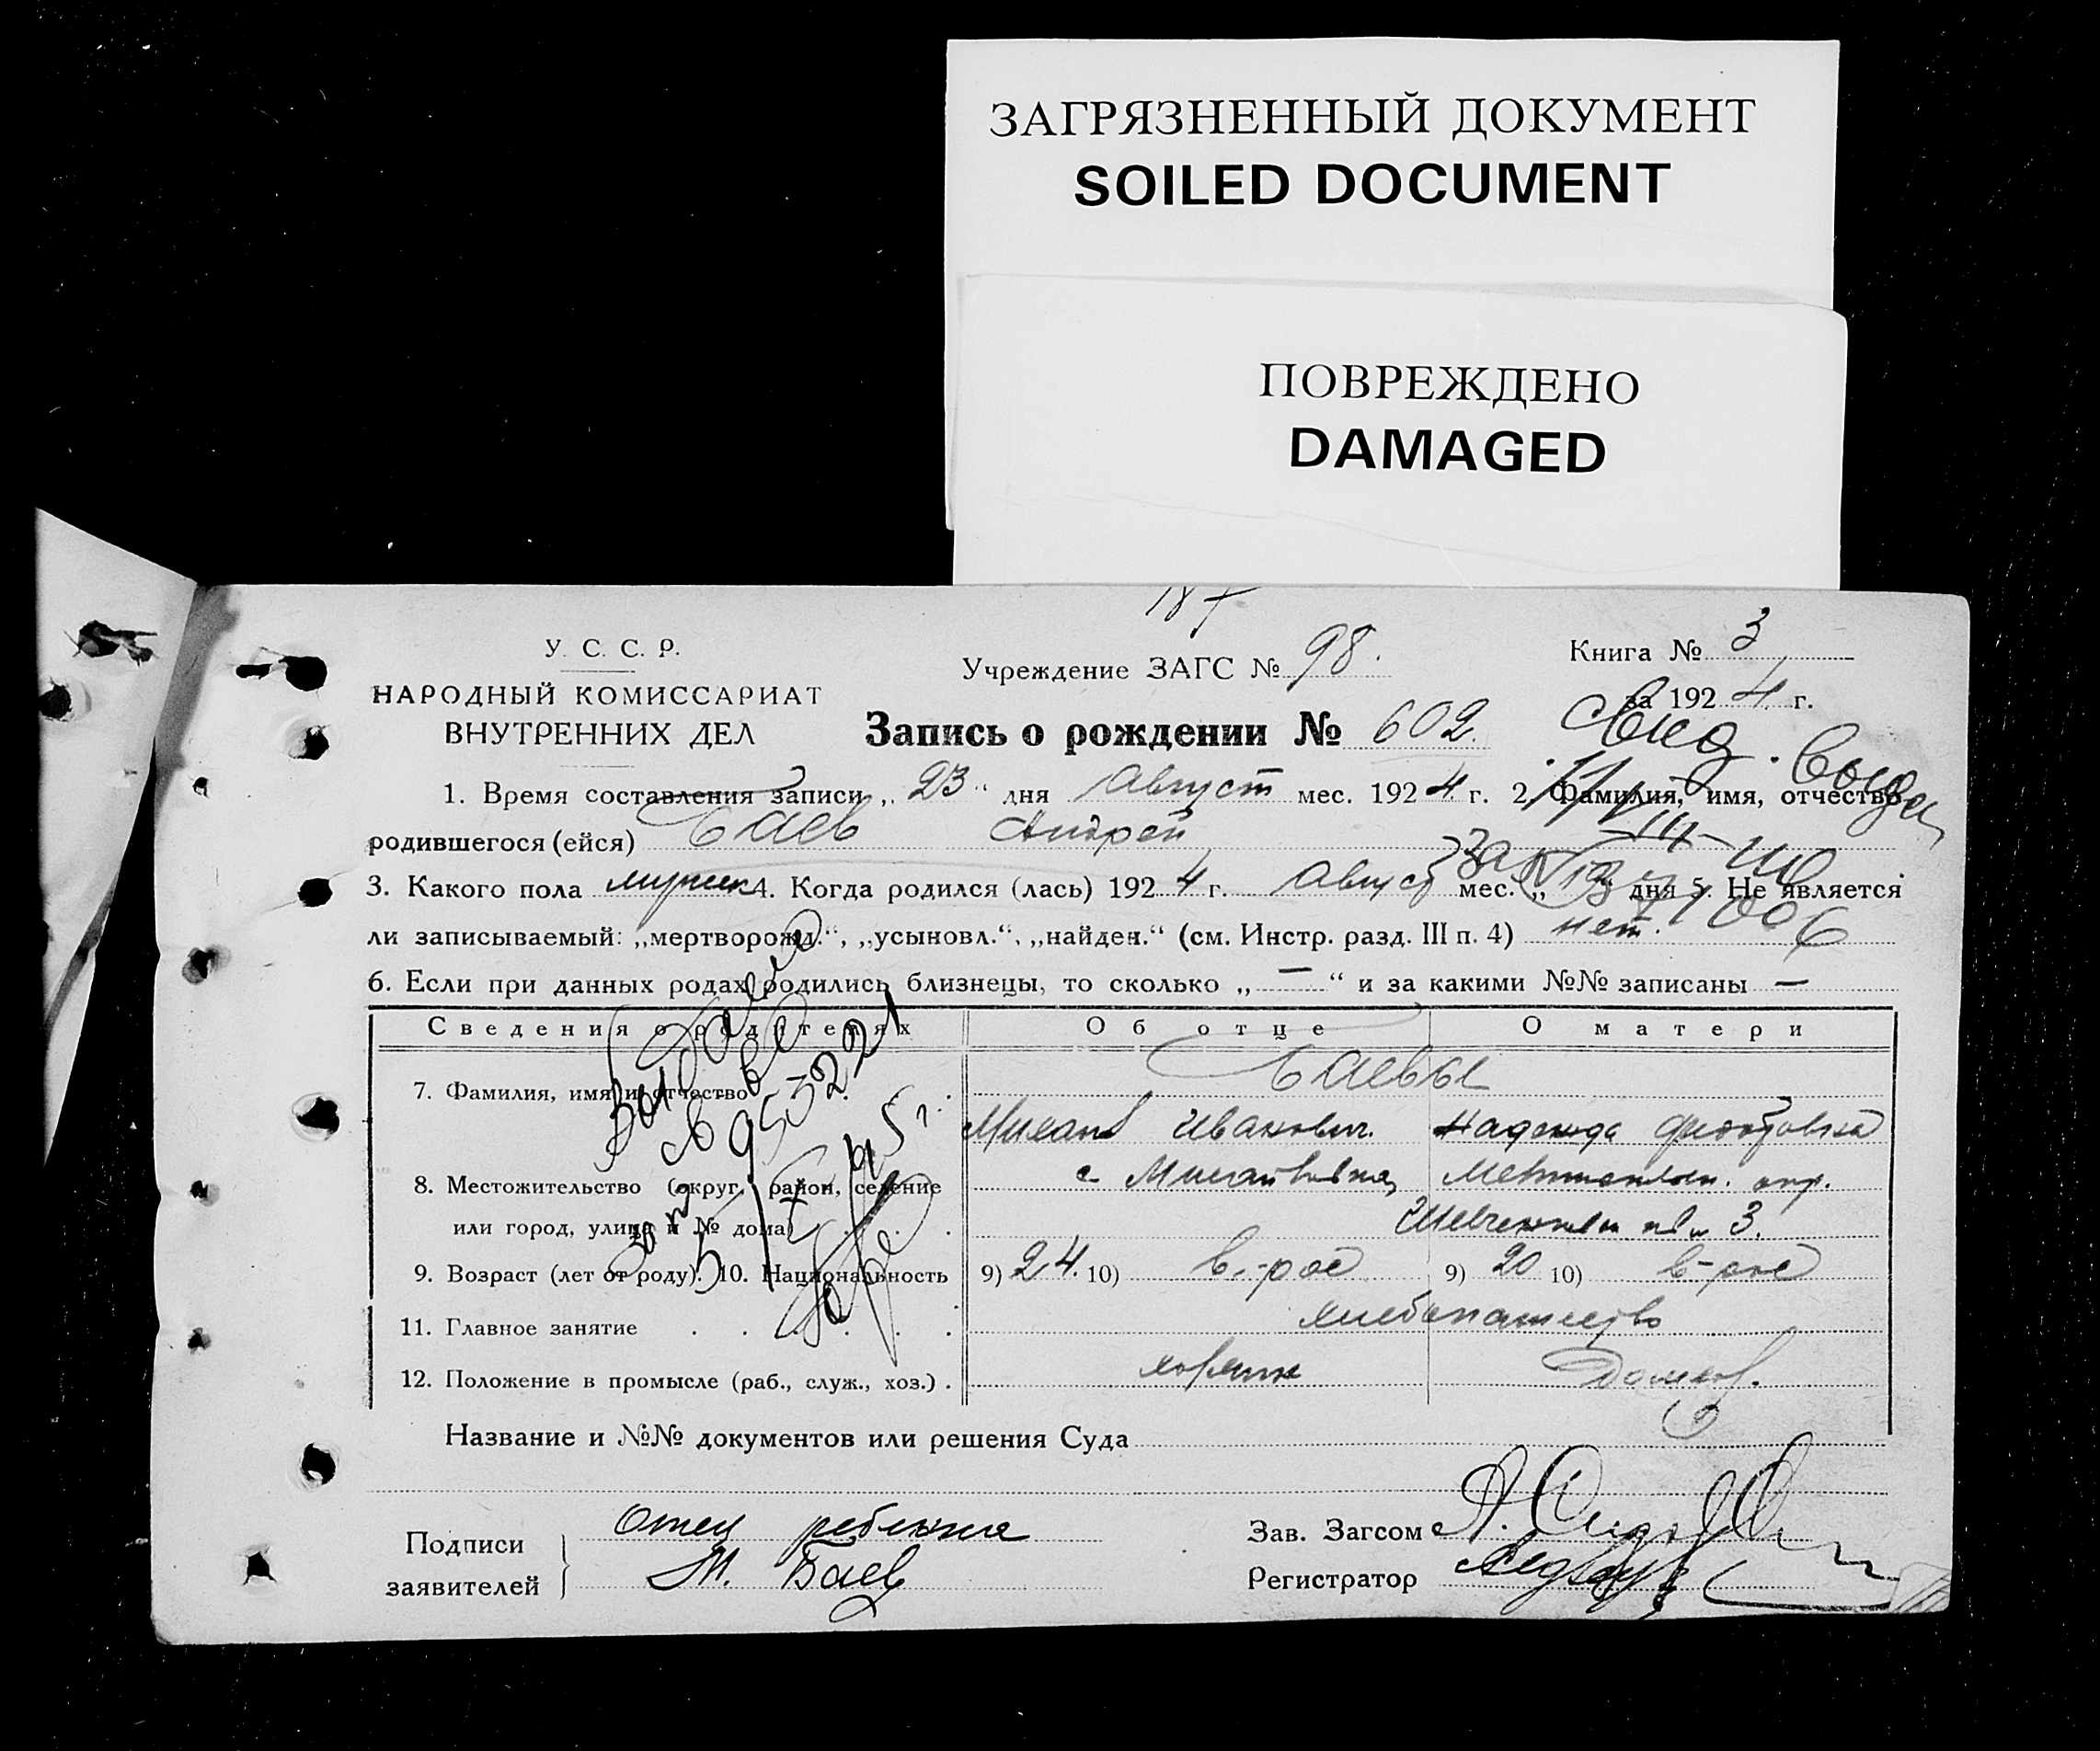 ЗАГРЯЗНЕННЫЙ ДОКУМЕНТ
SOILED DOCUMENT
ПОВРЕЖДЕНО
DAMAGED
187
У. С. С. Р.
НАРОДНЫЙ КОМИССАРИАТ
ВНУТРЕННИХ ДЕЛ
Учреждение ЗАГС № 98.
Книга № 3
за 1924 г.
Запись о рождении № 602.
1. Время составления записи „23“ дня Август мес. 1924 г. 2. Фамилия, имя, отчество
родившегося (ейся) Баев Андрей
3. Какого пола мужск 4. Когда родился (лась) 1924 г. Август мес. „13“ дня 5. Не является
ли записываемый: „мертворожд.“, „усыновл.“, „найден.“ (см. Инстр. разд. III п. 4) нет.
6. Если при данных родах родились близнецы, то сколько „—“ и за какими №№ записаны —
Сведения о родителях Об отце О матери
7. Фамилия, имя и отчество Баевы
Михаил Иванович. Надежда
8. Местожительство (округ, район, селение с
или город, улица и № дома) 3.
9. Возраст (лет от роду). 10. Национальность 9) 24. 10) в.-рос 9) 20 10) в-рос
11. Главное занятие хлебопашество
12. Положение в промысле (раб., служ., хоз.) . хозяин Домхоз.
Название и №№ документов или решения Суда
Подписи
заявителей
Отец ребенка
М. Баев
Зав. Загсом
Регистратор